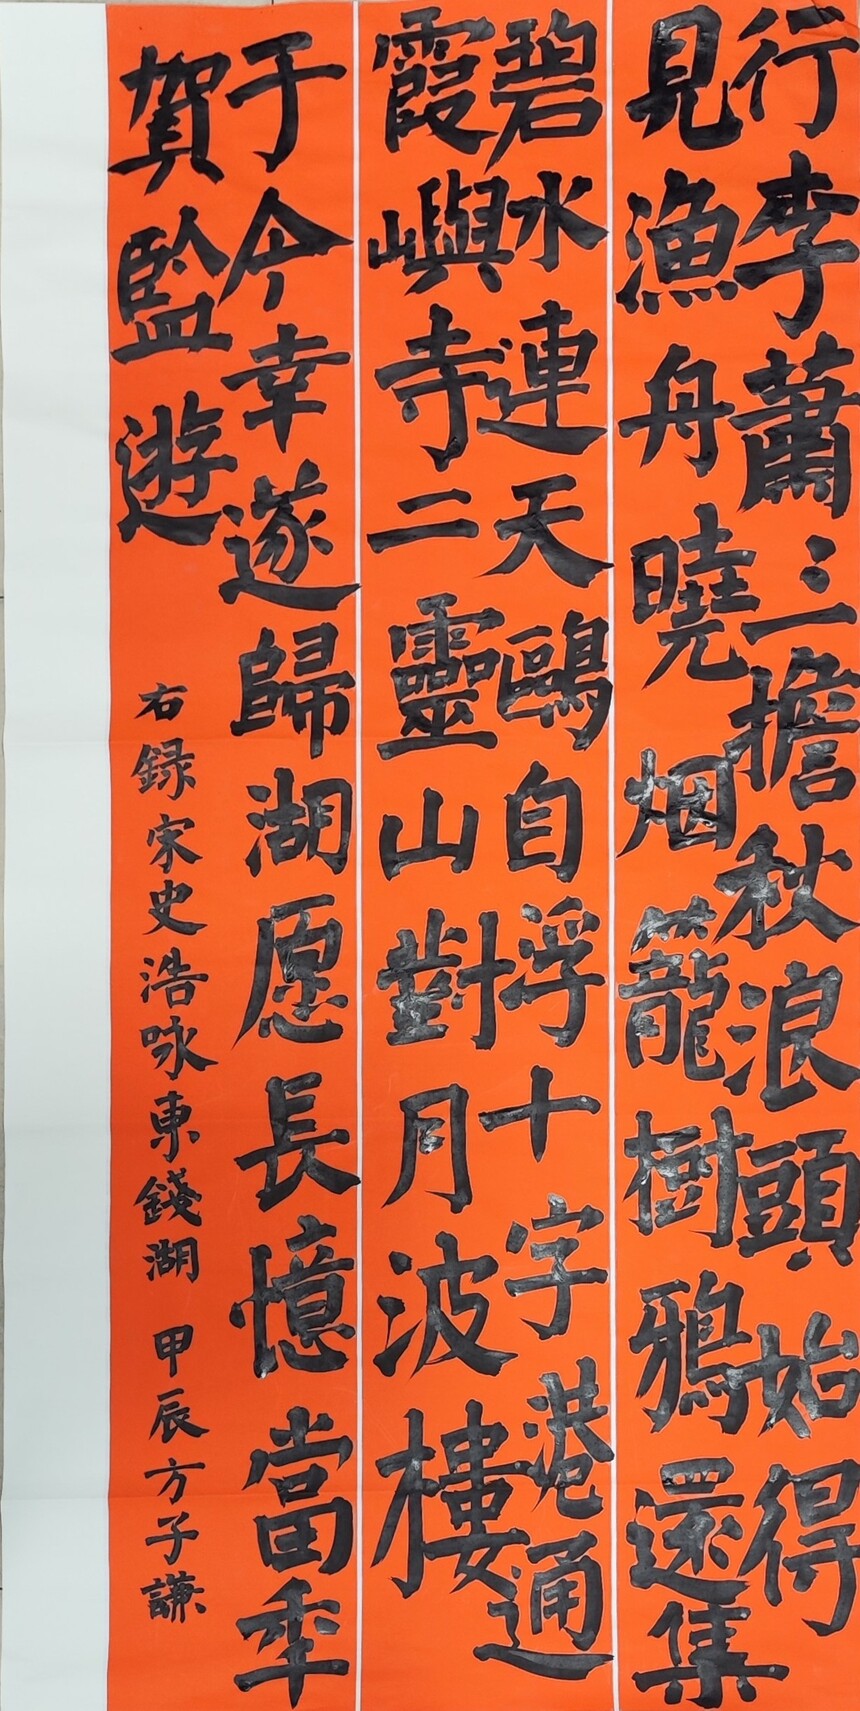 行李蕭〻一擔秋浪頭始得
見漁舟曉烟籠樹鴉還集
碧水連天鷗自浮十字港通
霞嶼寺二靈山對月波樓
于今幸遂歸湖愿長憶當秊
賀監遊
右録宋史浩咏東錢湖 甲辰方子謙